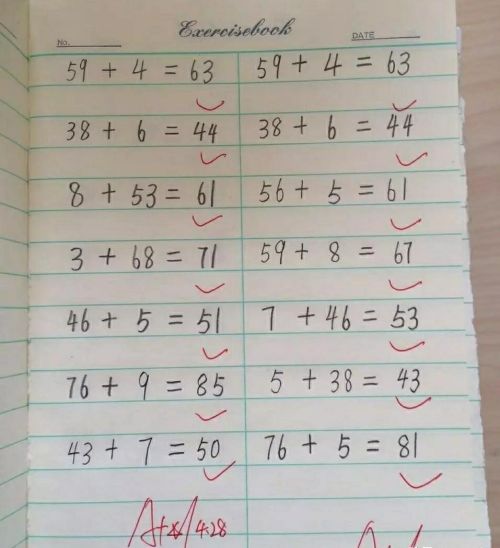 Exercisebook
No. DATE
59 + 4 = 63 59 + 4 = 63
38 + 6 = 44 38 + 6 = 44
8 + 53 = 61 56 + 5 = 61
3 + 68 = 71 59 + 8 = 67
46 + 5 = 51 7 + 46 = 53
76 + 9 = 85 5 + 38 = 43
43 + 7 = 50 76 + 5 = 81
4.28